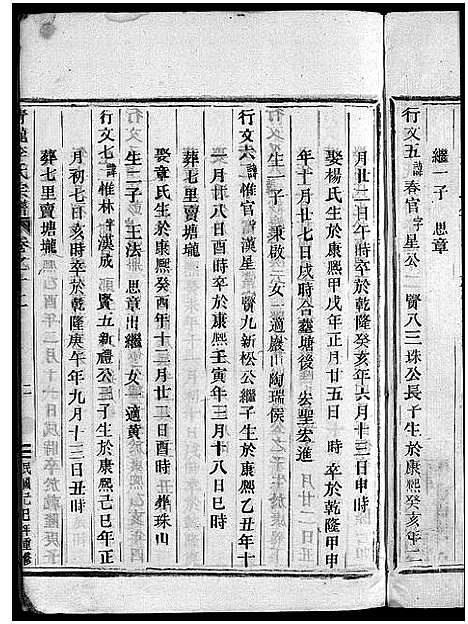 繼一子 思章
行文五諱春官字星公二賢八三珠公長子生於康熙癸亥年二
月廿二日午時卒於乾隆癸亥年六月十三日申時
娶楊氏生於康熙甲戌年正月廿五日 時 卒於乾隆甲申
年十月廿七日戌時合葬塘後 宏聖宏進
生一子 秉啟 二女 二適巖山陶瑞侯
行文六諱惟官字漢星一賢九新松公繼子生於康熙乙丑年十
二月廿八日酉時卒於康熙壬寅年三月十八日巳時
葬七里賣塘壠
娶章氏生於康熙癸酉年十二月廿二日酉時 葬珠山
生二子 玉法 思章出繼 一女 一適黃
行文七諱惟林字漢成 賢五新禮公三子生於康熙己巳年正
月初七日亥時卒於乾隆庚午年九月十三日丑時
葬七里賣塘壠
李氏宗譜 卷之十二
民國己巳年重修